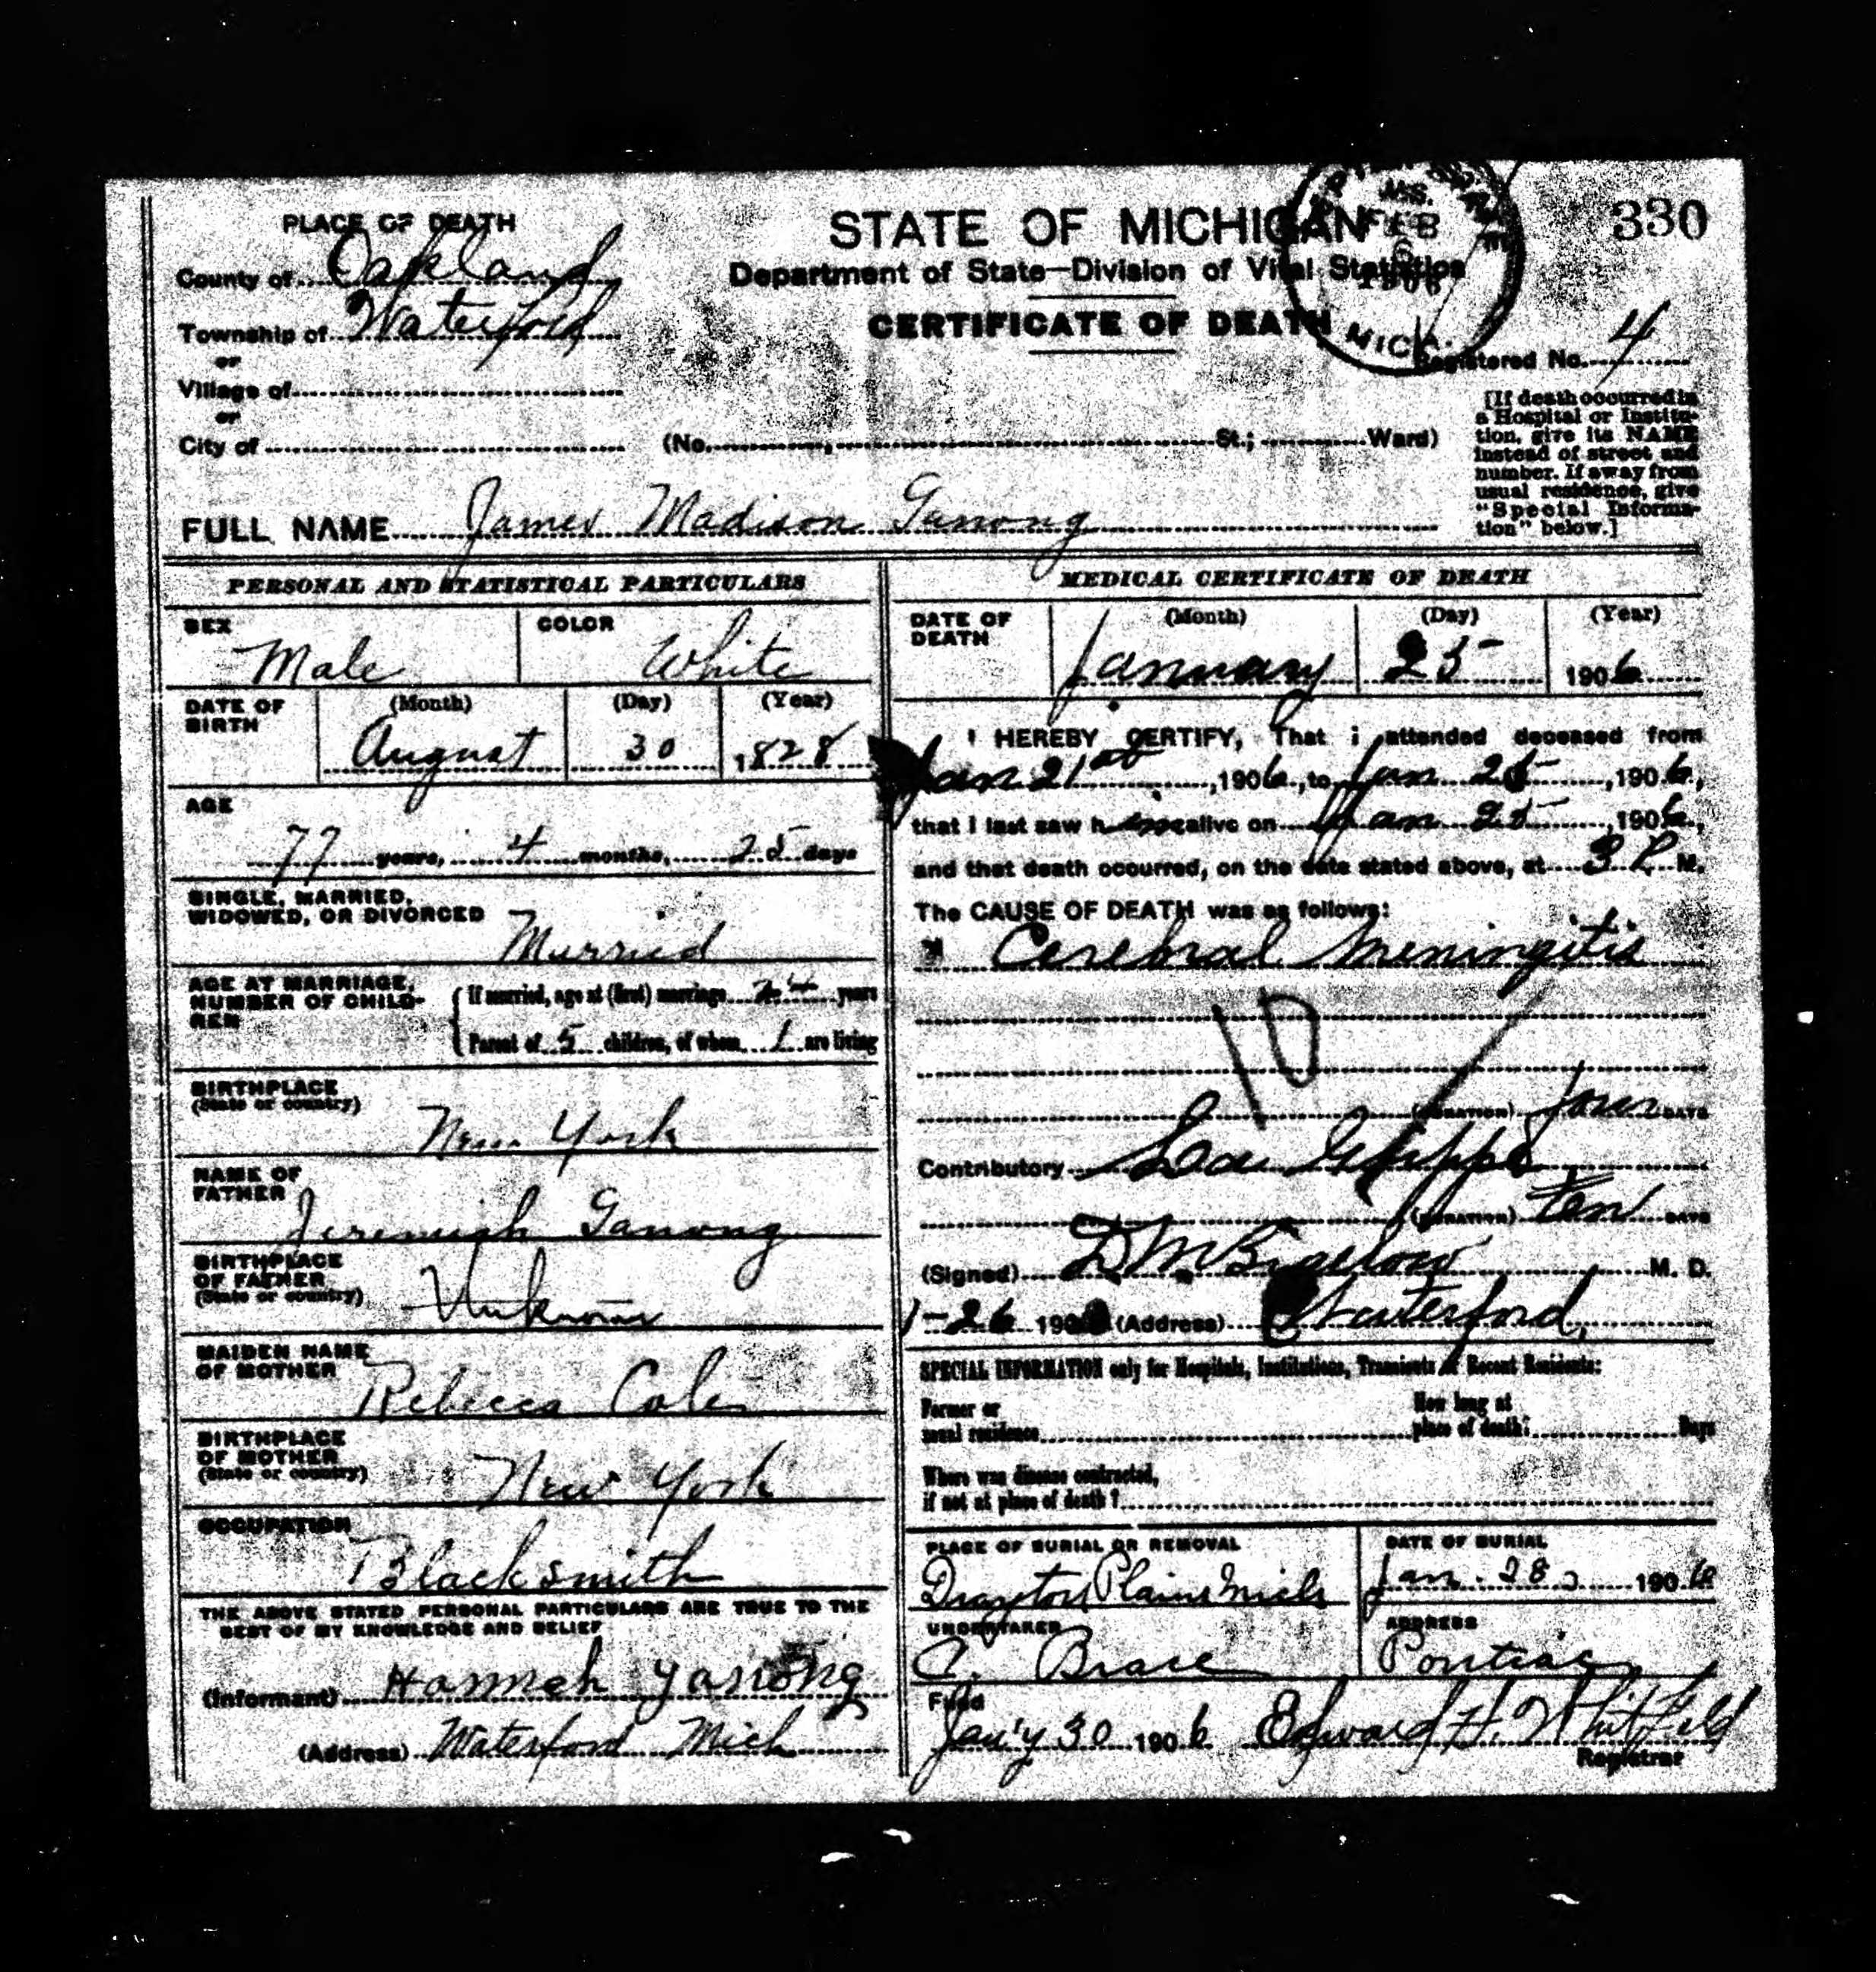 330
PLACE OF DEATH
STATE OF MICHIGAN
Department of State—Division of Vital Statistics
CERTIFICATE OF DEATH
FEB
6
1906
MICH.
County of Oakland
Township of Waterford
or
Village of
or
City of
(No. , St.; Ward)
Registered No. 4
[If death occurred in
a Hospital or Institu-
tion, give its NAME
instead of street and
number. If away from
usual residence, give
"Special Informa-
tion" below.]
FULL NAME James Madison Ganong
PERSONAL AND STATISTICAL PARTICULARS
SEX Male
COLOR White
DATE OF BIRTH
(Month) (Day) (Year)
August 30 1828
AGE
77 years, 4 months, 25 days
SINGLE, MARRIED,
WIDOWED, OR DIVORCED
Married
AGE AT MARRIAGE,
NUMBER OF CHILD-
REN
If married, age at (first) marriage 24 years
Parent of 5 children, of whom 1 are living
BIRTHPLACE
(State or country)
New York
NAME OF
FATHER
Jeremiah Ganong
BIRTHPLACE
OF FATHER
(State or country)
Unknown
MAIDEN NAME
OF MOTHER
Rebecca Cole
BIRTHPLACE
OF MOTHER
(State or country)
New York
OCCUPATION
Blacksmith
THE ABOVE STATED PERSONAL PARTICULARS ARE TRUE TO THE
BEST OF MY KNOWLEDGE AND BELIEF
(Informant) Hannah Ganong
(Address) Waterford Mich
MEDICAL CERTIFICATE OF DEATH
DATE OF
DEATH
(Month) (Day) (Year)
January 25 1906
I HEREBY CERTIFY, That I attended deceased from
Jan 21st, 1906, to Jan 25, 1906,
that I last saw him alive on Jan 25, 1906,
and that death occurred, on the date stated above, at 3 P. M.
The CAUSE OF DEATH was as follows:
Cerebral Meningitis
10
(DURATION) four DAYS
Contributory La Grippe
(DURATION) ten DAYS
(Signed) D M Bigelow M. D.
1-26 190 (Address) Waterford,
SPECIAL INFORMATION only for Hospitals, Institutions, Transients or Recent Residents:
Former or
usual residence
How long at
place of death? Days
Where was disease contracted,
if not at place of death?
PLACE OF BURIAL OR REMOVAL
Drayton Plains Mich
DATE OF BURIAL
Jan. 28, 1906
UNDERTAKER
C. Brace
ADDRESS
Pontiac
Filed
Jan'y 30 1906 Edward H. Whitfield
Registrar